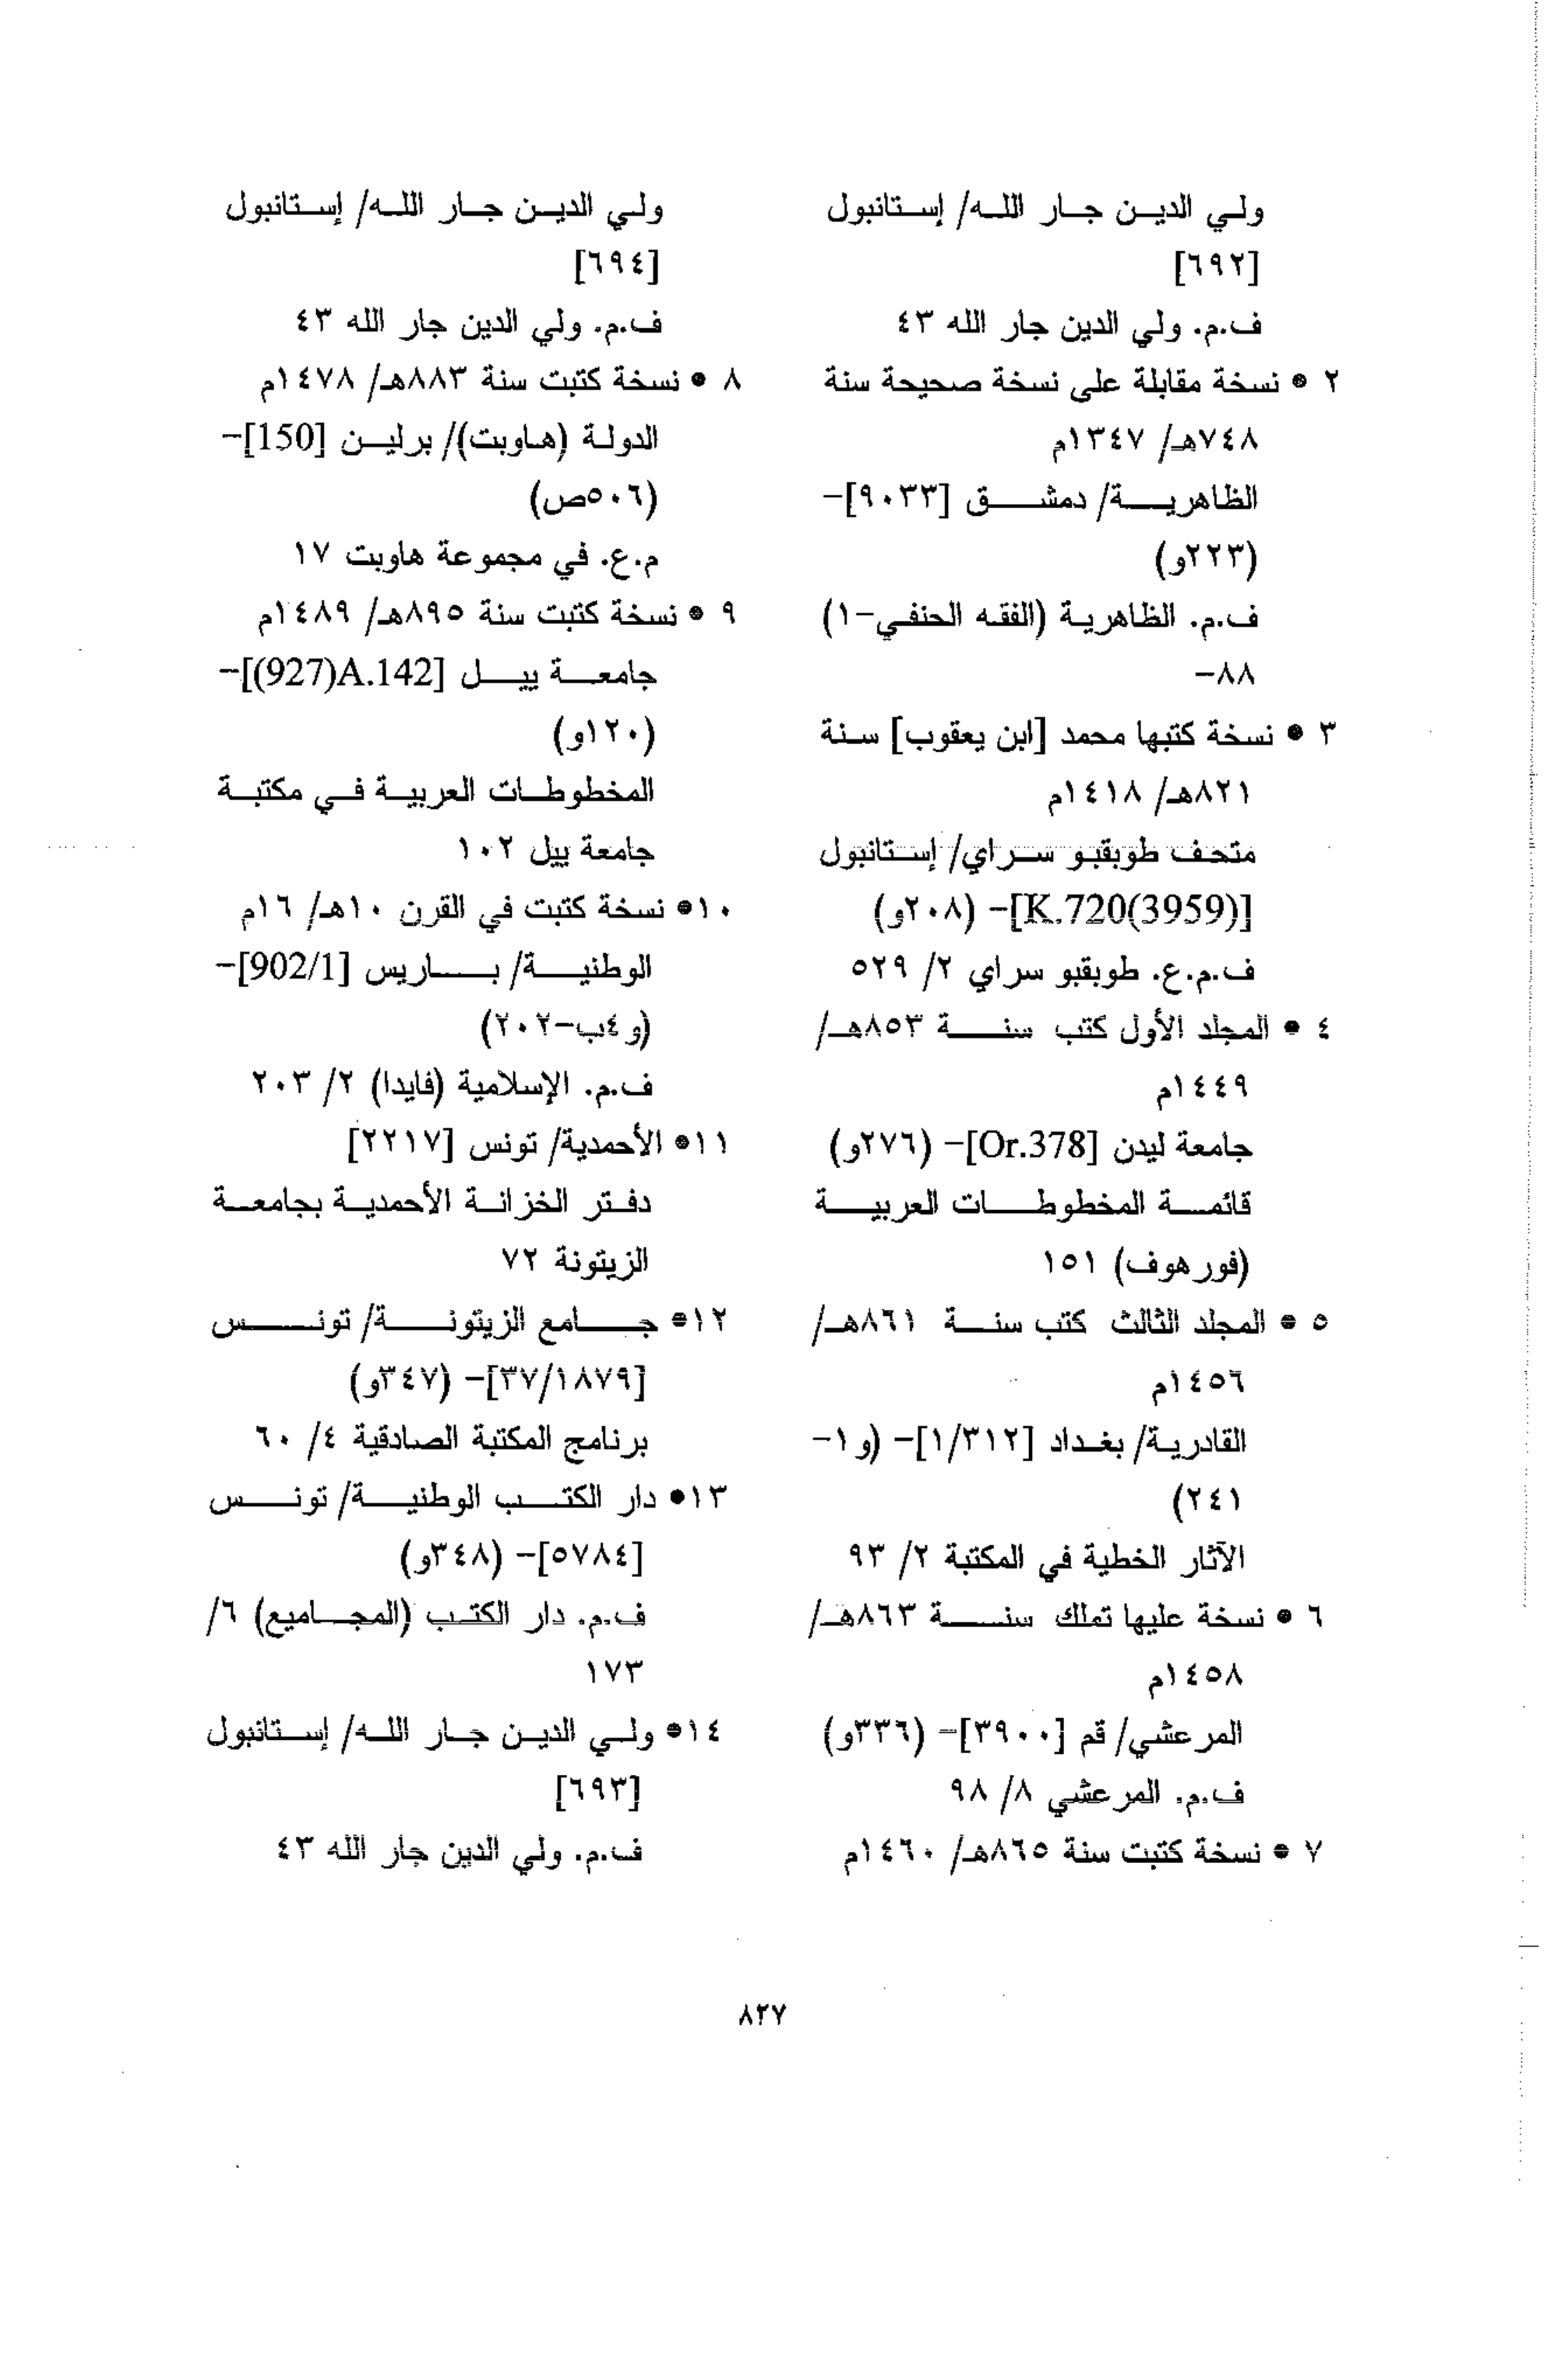 ولي الدين جار الله/ إستانبول
[٦٩٢]
ف.م. ولي الدين جار الله ٤٣
٢ • نسخة مقابلة على نسخة صحيحة سنة
٧٤٨هـ/ ١٣٤٧م
الظاهرية/ دمشق [٩٠٣٣]-
(٢٢٣و)
ف.م. الظاهرية (الفقه الحنفي-١)
٨٨-
٣ • نسخة كتبها محمد [ابن يعقوب] سنة
٨٢١هـ/ ١٤١٨م
متحف طوبقبو سراي/ إستانبول
[K.720(3959)]- (٢٠٨و)
ف.م.ع. طوبقبو سراي ٢/ ٥٢٩
٤ • المجلد الأول كتب سنة ٨٥٣هـ/
١٤٤٩م
جامعة ليدن [Or.378]- (٢٧٦و)
قائمة المخطوطات العربية
(فورهوف) ١٥١
٥ • المجلد الثالث كتب سنة ٨٦١هـ/
١٤٥٦م
القادرية/ بغداد [١/٣١٢]- (و١-
٢٤١)
الآثار الخطية في المكتبة ٢/ ٩٣
٦ • نسخة عليها تملك سنة ٨٦٣هـ/
١٤٥٨م
المرعشي/ قم [٣٩٠٠]- (٣٣٦و)
ف.م. المرعشي ٨/ ٩٨
٧ • نسخة كتبت سنة ٨٦٥هـ/ ١٤٦٠م
ولي الدين جار الله/ إستانبول
[٦٩٤]
ف.م. ولي الدين جار الله ٤٣
٨ • نسخة كتبت سنة ٨٨٣هـ/ ١٤٧٨م
الدولة (هاوبت)/ برلين [150]-
(٥٠٦ص)
م.ع. في مجموعة هاوبت ١٧
٩ • نسخة كتبت سنة ٨٩٥هـ/ ١٤٨٩م
جامعة ييل [A.142(927)]-
(١٢٠و)
المخطوطات العربية في مكتبة
جامعة ييل ١٠٢
١٠• نسخة كتبت في القرن ١٠هـ/ ١٦م
الوطنية/ باريس [902/1]-
(و٤ب-٢٠٢)
ف.م. الإسلامية (فايدا) ٢/ ٢٠٣
١١• الأحمدية/ تونس [٢٢١٧]
دفتر الخزانة الأحمدية بجامعة
الزيتونة ٧٢
١٢• جامع الزيتونة/ تونس
[٣٧/١٨٧٩]- (٣٤٧و)
برنامج المكتبة الصادقية ٤/ ٦٠
١٣• دار الكتب الوطنية/ تونس
[٥٧٨٤]- (٣٤٨و)
ف.م. دار الكتب (المجاميع) ٦/
١٧٣
١٤• ولي الدين جار الله/ إستانبول
[٦٩٣]
ف.م. ولي الدين جار الله ٤٣
٨٢٧